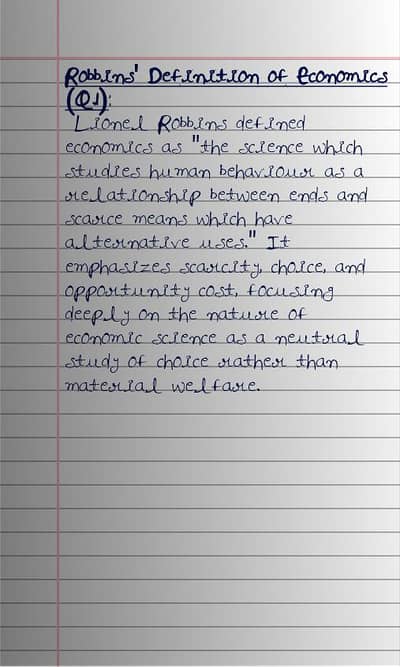 Robbins' Definition of Economics
(Q1):
Lionel Robbins defined
economics as "the science which
studies human behaviour as a
relationship between ends and
scarce means which have
alternative uses." It
emphasizes scarcity, choice, and
opportunity cost, focusing
deeply on the nature of
economic science as a neutral
study of choice rather than
material welfare.